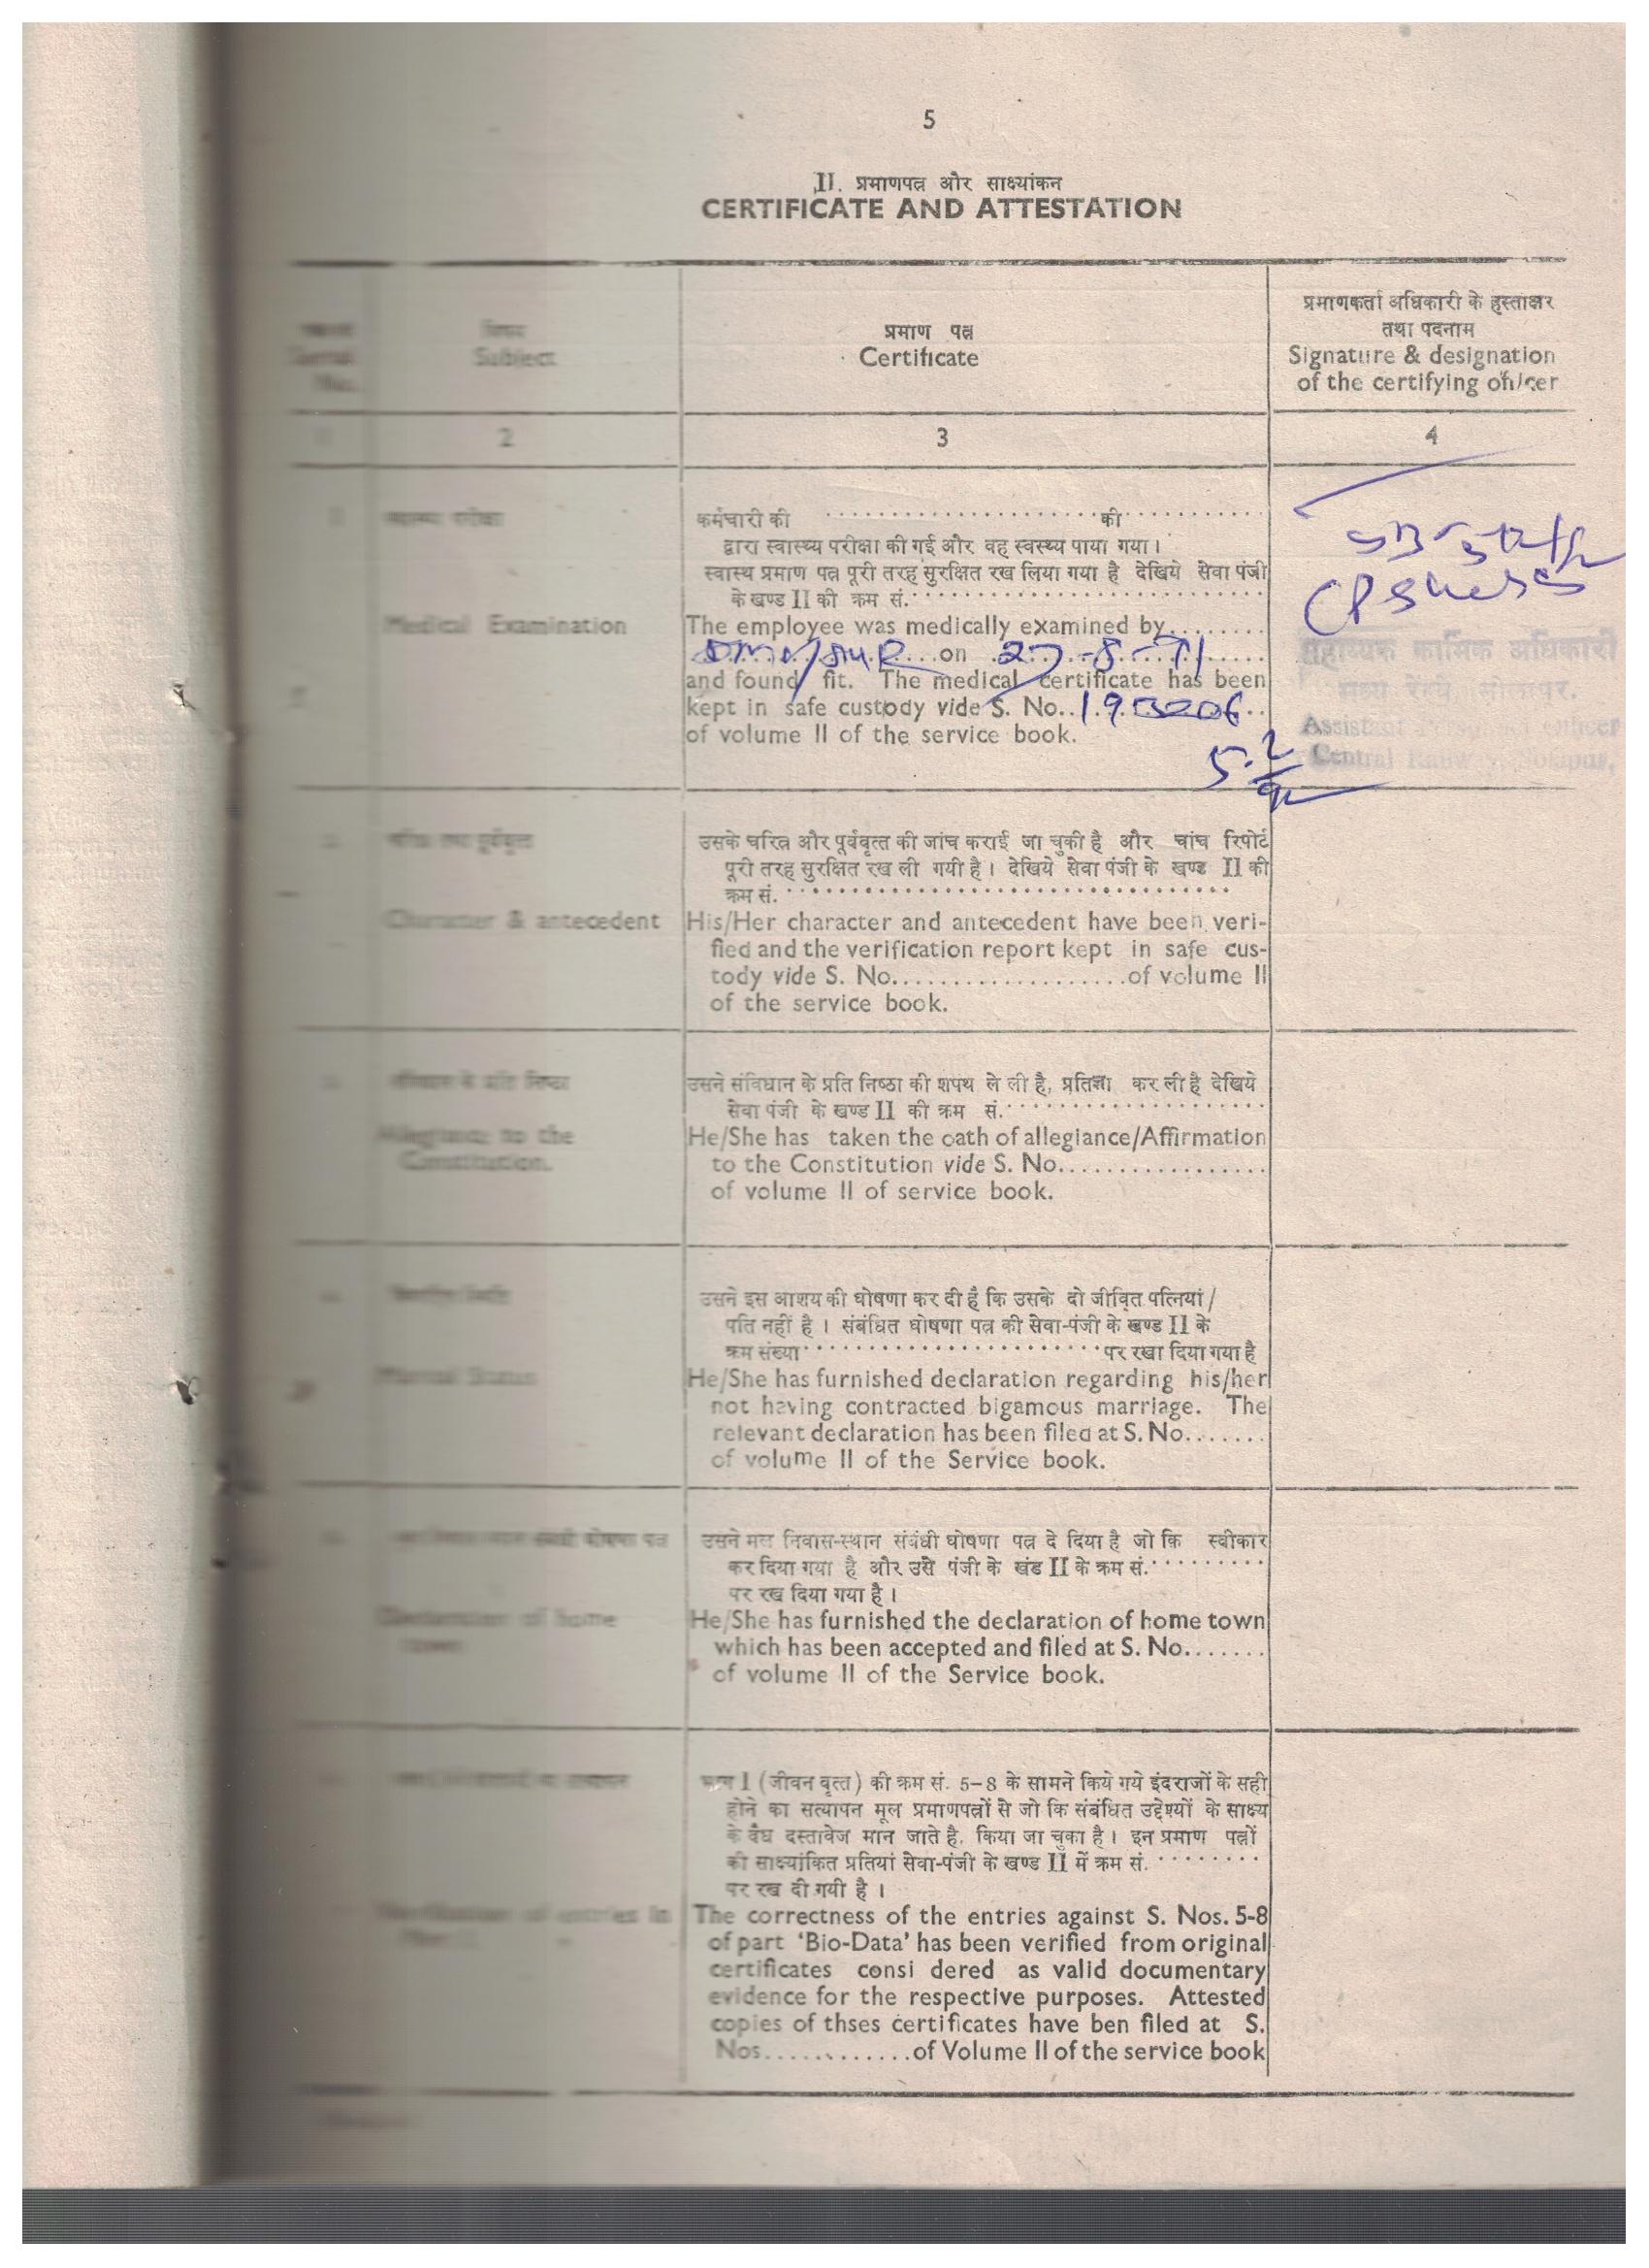 5
II. प्रमाणपत्र और साक्ष्यांकन
CERTIFICATE AND ATTESTATION
विषय
Subject
प्रमाण पत्र
Certificate
प्रमाणकर्ता अधिकारी के हस्ताक्षर
तथा पदनाम
Signature & designation
of the certifying officer
2
3
4
कर्मचारी की ........................ की ..............
द्वारा स्वास्थ्य परीक्षा की गई और वह स्वस्थ्य पाया गया।
स्वास्थ प्रमाण पत्र पूरी तरह सुरक्षित रख लिया गया है देखिये सेवा पंजी
के खण्ड II की क्रम सं. ..............................
Medical Examination
The employee was medically examined by.........
on 27-8-71
and found fit. The medical certificate has been
kept in safe custody vide S. No..
of volume II of the service book.
सहाय्यक कार्मिक अधिकारी
मध्य रेलवे, सोलापुर.
Assistant Officer
Central Railway, Solapur,
उसके चरित्र और पूर्ववृत्त की जांच कराई जा चुकी है और चांच रिपोर्ट
पूरी तरह सुरक्षित रख ली गयी है। देखिये सेवा पंजी के खण्ड II की
क्रम सं. ..................................
Character & antecedent
His/Her character and antecedent have been veri-
fied and the verification report kept in safe cus-
tody vide S. No....................of volume II
of the service book.
उसने संविधान के प्रति निष्ठा की शपथ ले ली है, प्रतिज्ञा कर ली है देखिये
सेवा पंजी के खण्ड II की क्रम सं. ....................
Allegiance to the
Constitution.
He/She has taken the oath of allegiance/Affirmation
to the Constitution vide S. No..................
of volume II of service book.
उसने इस आशय की घोषणा कर दी है कि उसके दो जीवित पत्नियां/
पति नहीं है। संबंधित घोषणा पत्र की सेवा-पंजी के खण्ड II के
क्रम संख्या ........................ पर रखा दिया गया है
Marital Status
He/She has furnished declaration regarding his/her
not having contracted bigamous marriage. The
relevant declaration has been filed at S. No.......
of volume II of the Service book.
उसने मूल निवास-स्थान संबंधी घोषणा पत्र दे दिया है जो कि स्वीकार
कर दिया गया है और उसे पंजी के खंड II के क्रम सं. ..........
पर रख दिया गया है।
Declaration of home
town
He/She has furnished the declaration of home town
which has been accepted and filed at S. No.......
of volume II of the Service book.
भाग I (जीवन वृत्त) की क्रम सं. 5-8 के सामने किये गये इंदराजों के सही
होने का सत्यापन मूल प्रमाणपत्रों से जो कि संबंधित उद्देश्यों के साक्ष्य
के वैध दस्तावेज मान जाते है, किया जा चुका है। इन प्रमाण पत्रों
की साक्ष्यांकित प्रतियां सेवा-पंजी के खण्ड II में क्रम सं. ........
पर रख दी गयी है।
Verification of entries in
The correctness of the entries against S. Nos. 5-8
of part 'Bio-Data' has been verified from original
certificates consi dered as valid documentary
evidence for the respective purposes. Attested
copies of thses certificates have ben filed at S.
Nos.............of Volume II of the service book